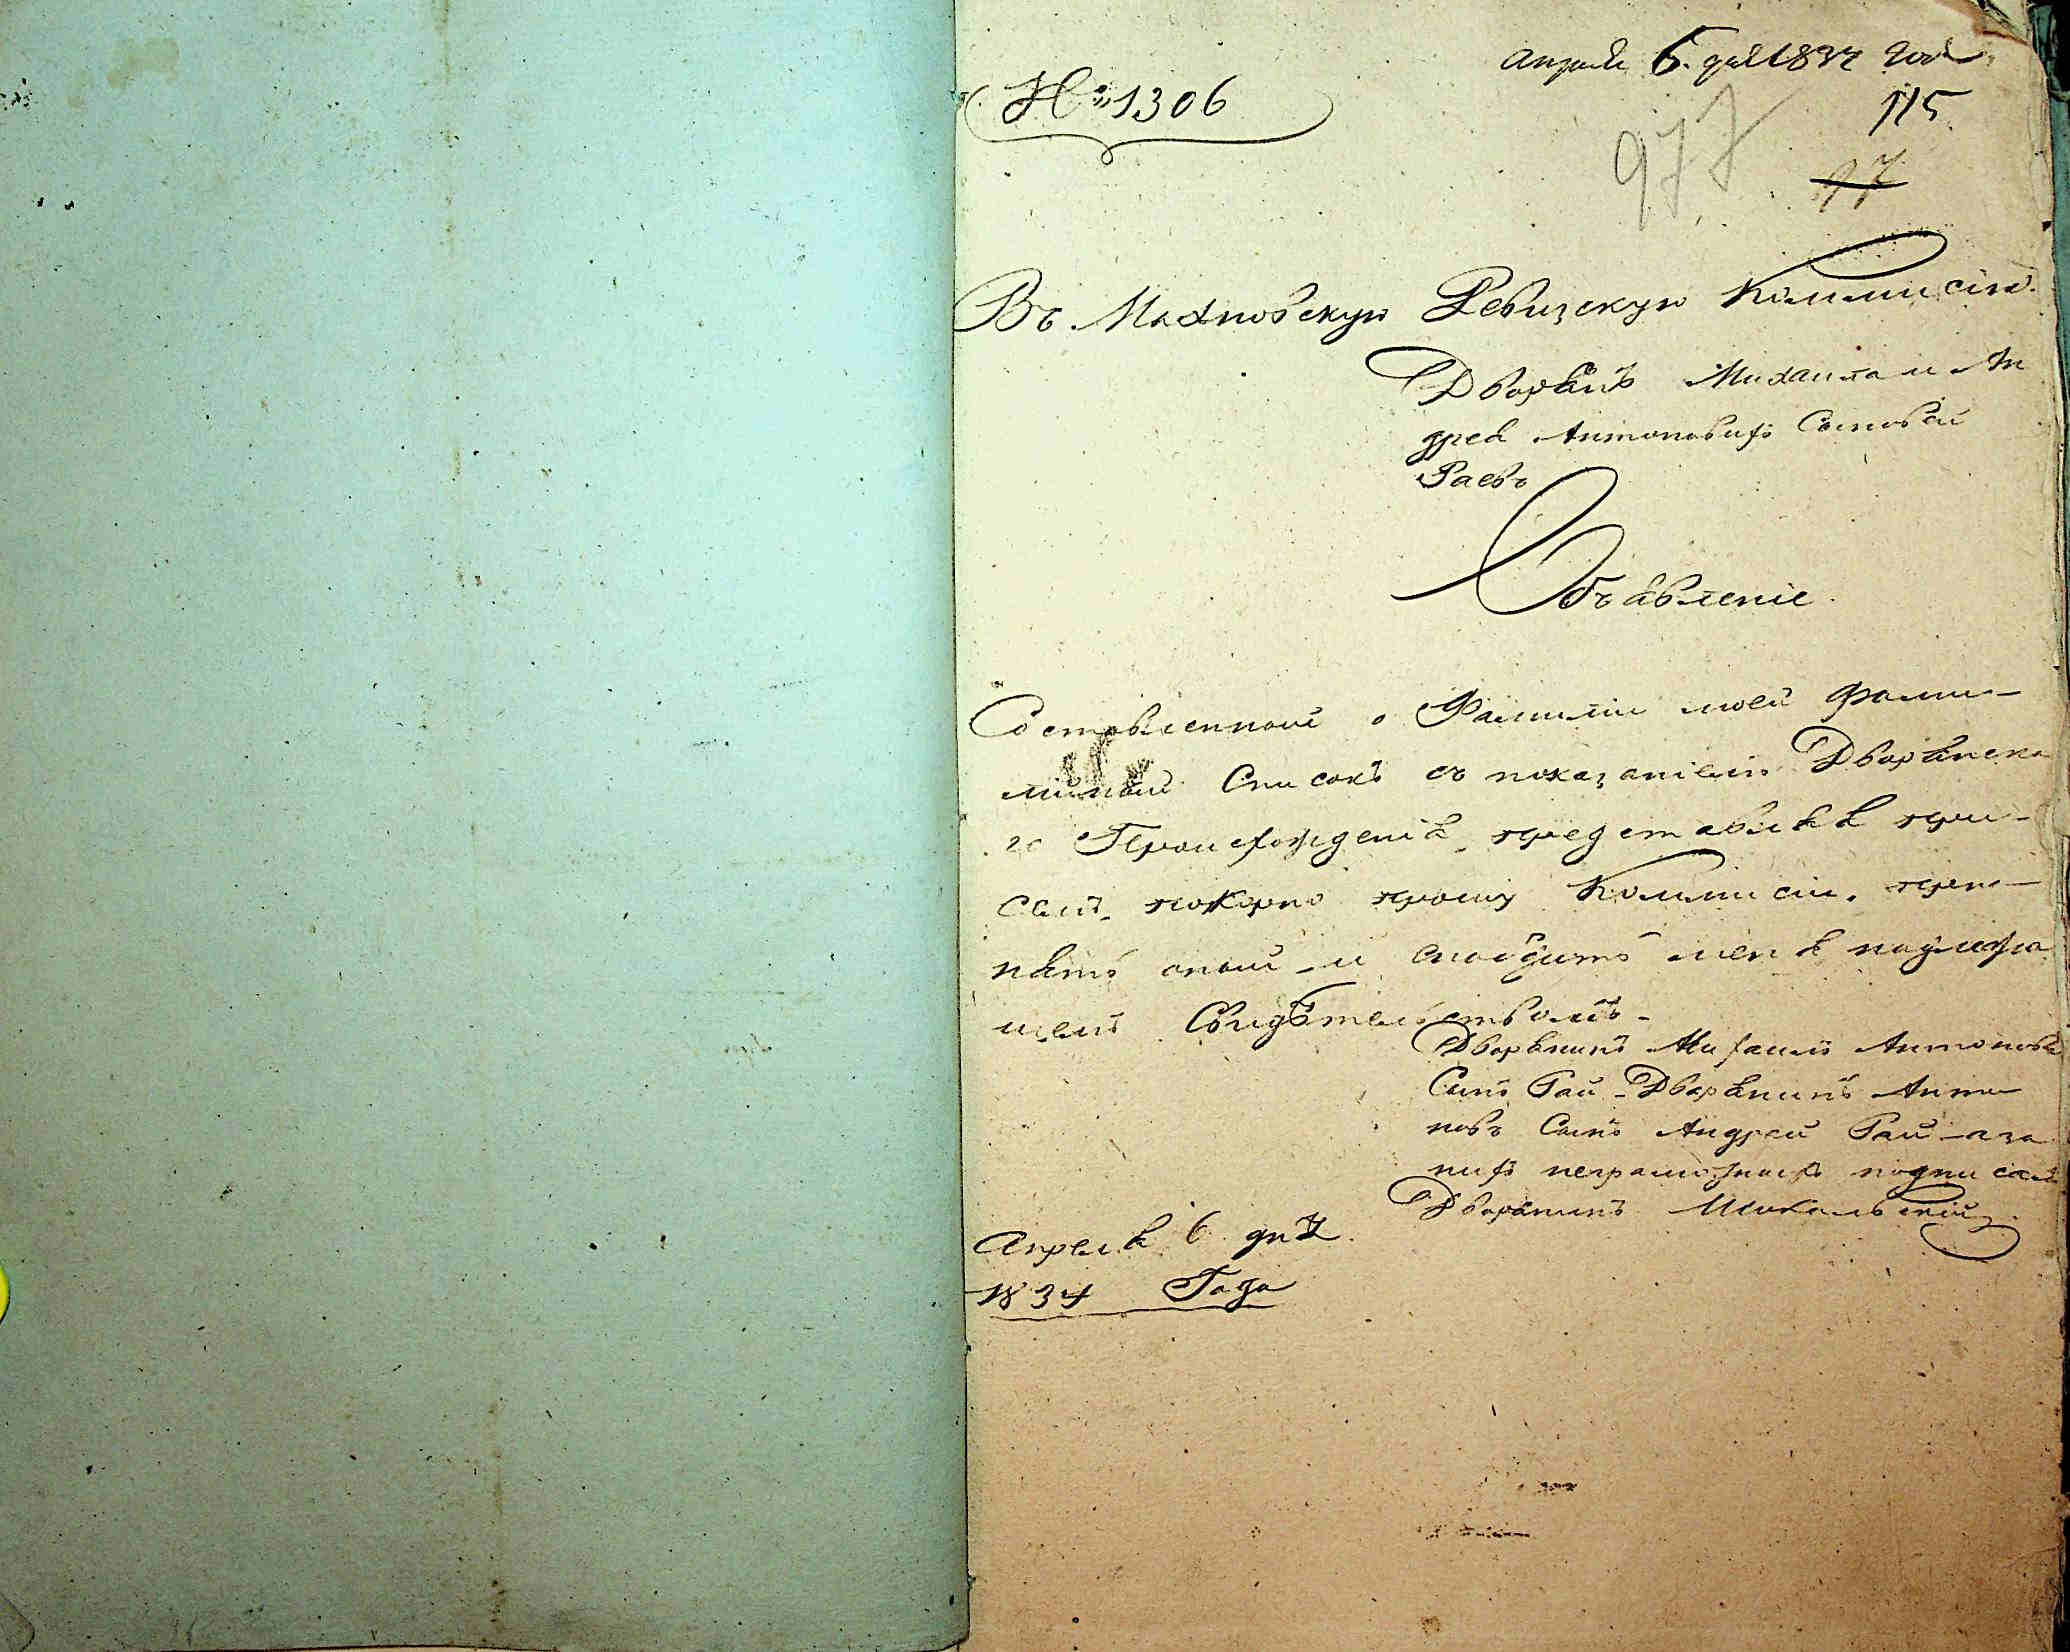 Апреля 6. дня 1834 года
№ 1306
115
977
97
Въ Махновскую Ревизскую Коммисію.
Дворянъ Михаила и Ан
дрея Антоновыхъ Сыновей
Раевъ
Объявленіе.
Составленной о Фамиліи моей фами-
лійной Списокъ съ показаніемъ Дворянска
го Происхожденія, представляя при
семъ, покорно прошу Коммисіи, при-
нять оной и снабдить меня надлежа
щемъ Свидѣтельствомъ.
Дворянинъ Михаилъ Антоновъ
Сынъ Рай - Дворянинъ Анто
новъ Сынъ Андрей Рай - а за
нихъ неграмотныхъ подписалъ
Дворянинъ
Апреля 6 дня
1834 Года